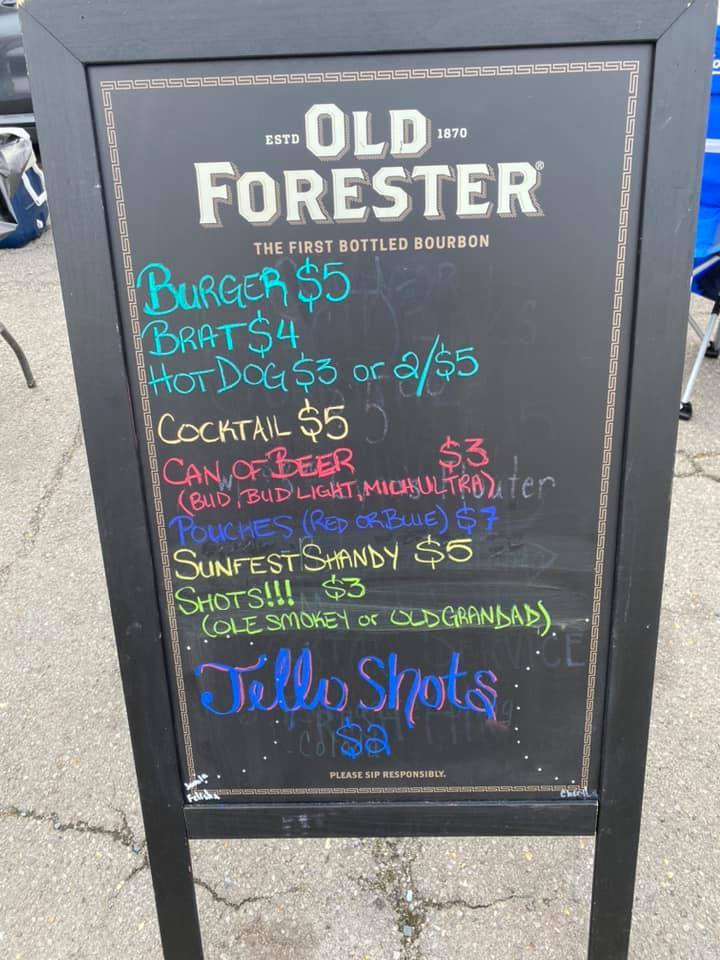 ESTD OLD 1870
FORESTER®
THE FIRST BOTTLED BOURBON
BURGER $5
BRAT $4
HOT DOG $3 or 2/$5
COCKTAIL $5
CAN OF BEER $3
(BUD, BUD LIGHT, MICH ULTRA)
POUCHES (RED OR BLUE) $7
SUNFEST SHANDY $5
SHOTS!!! $3
(OLE SMOKEY or OLD GRANDAD)
Jello Shots
$2
PLEASE SIP RESPONSIBLY.